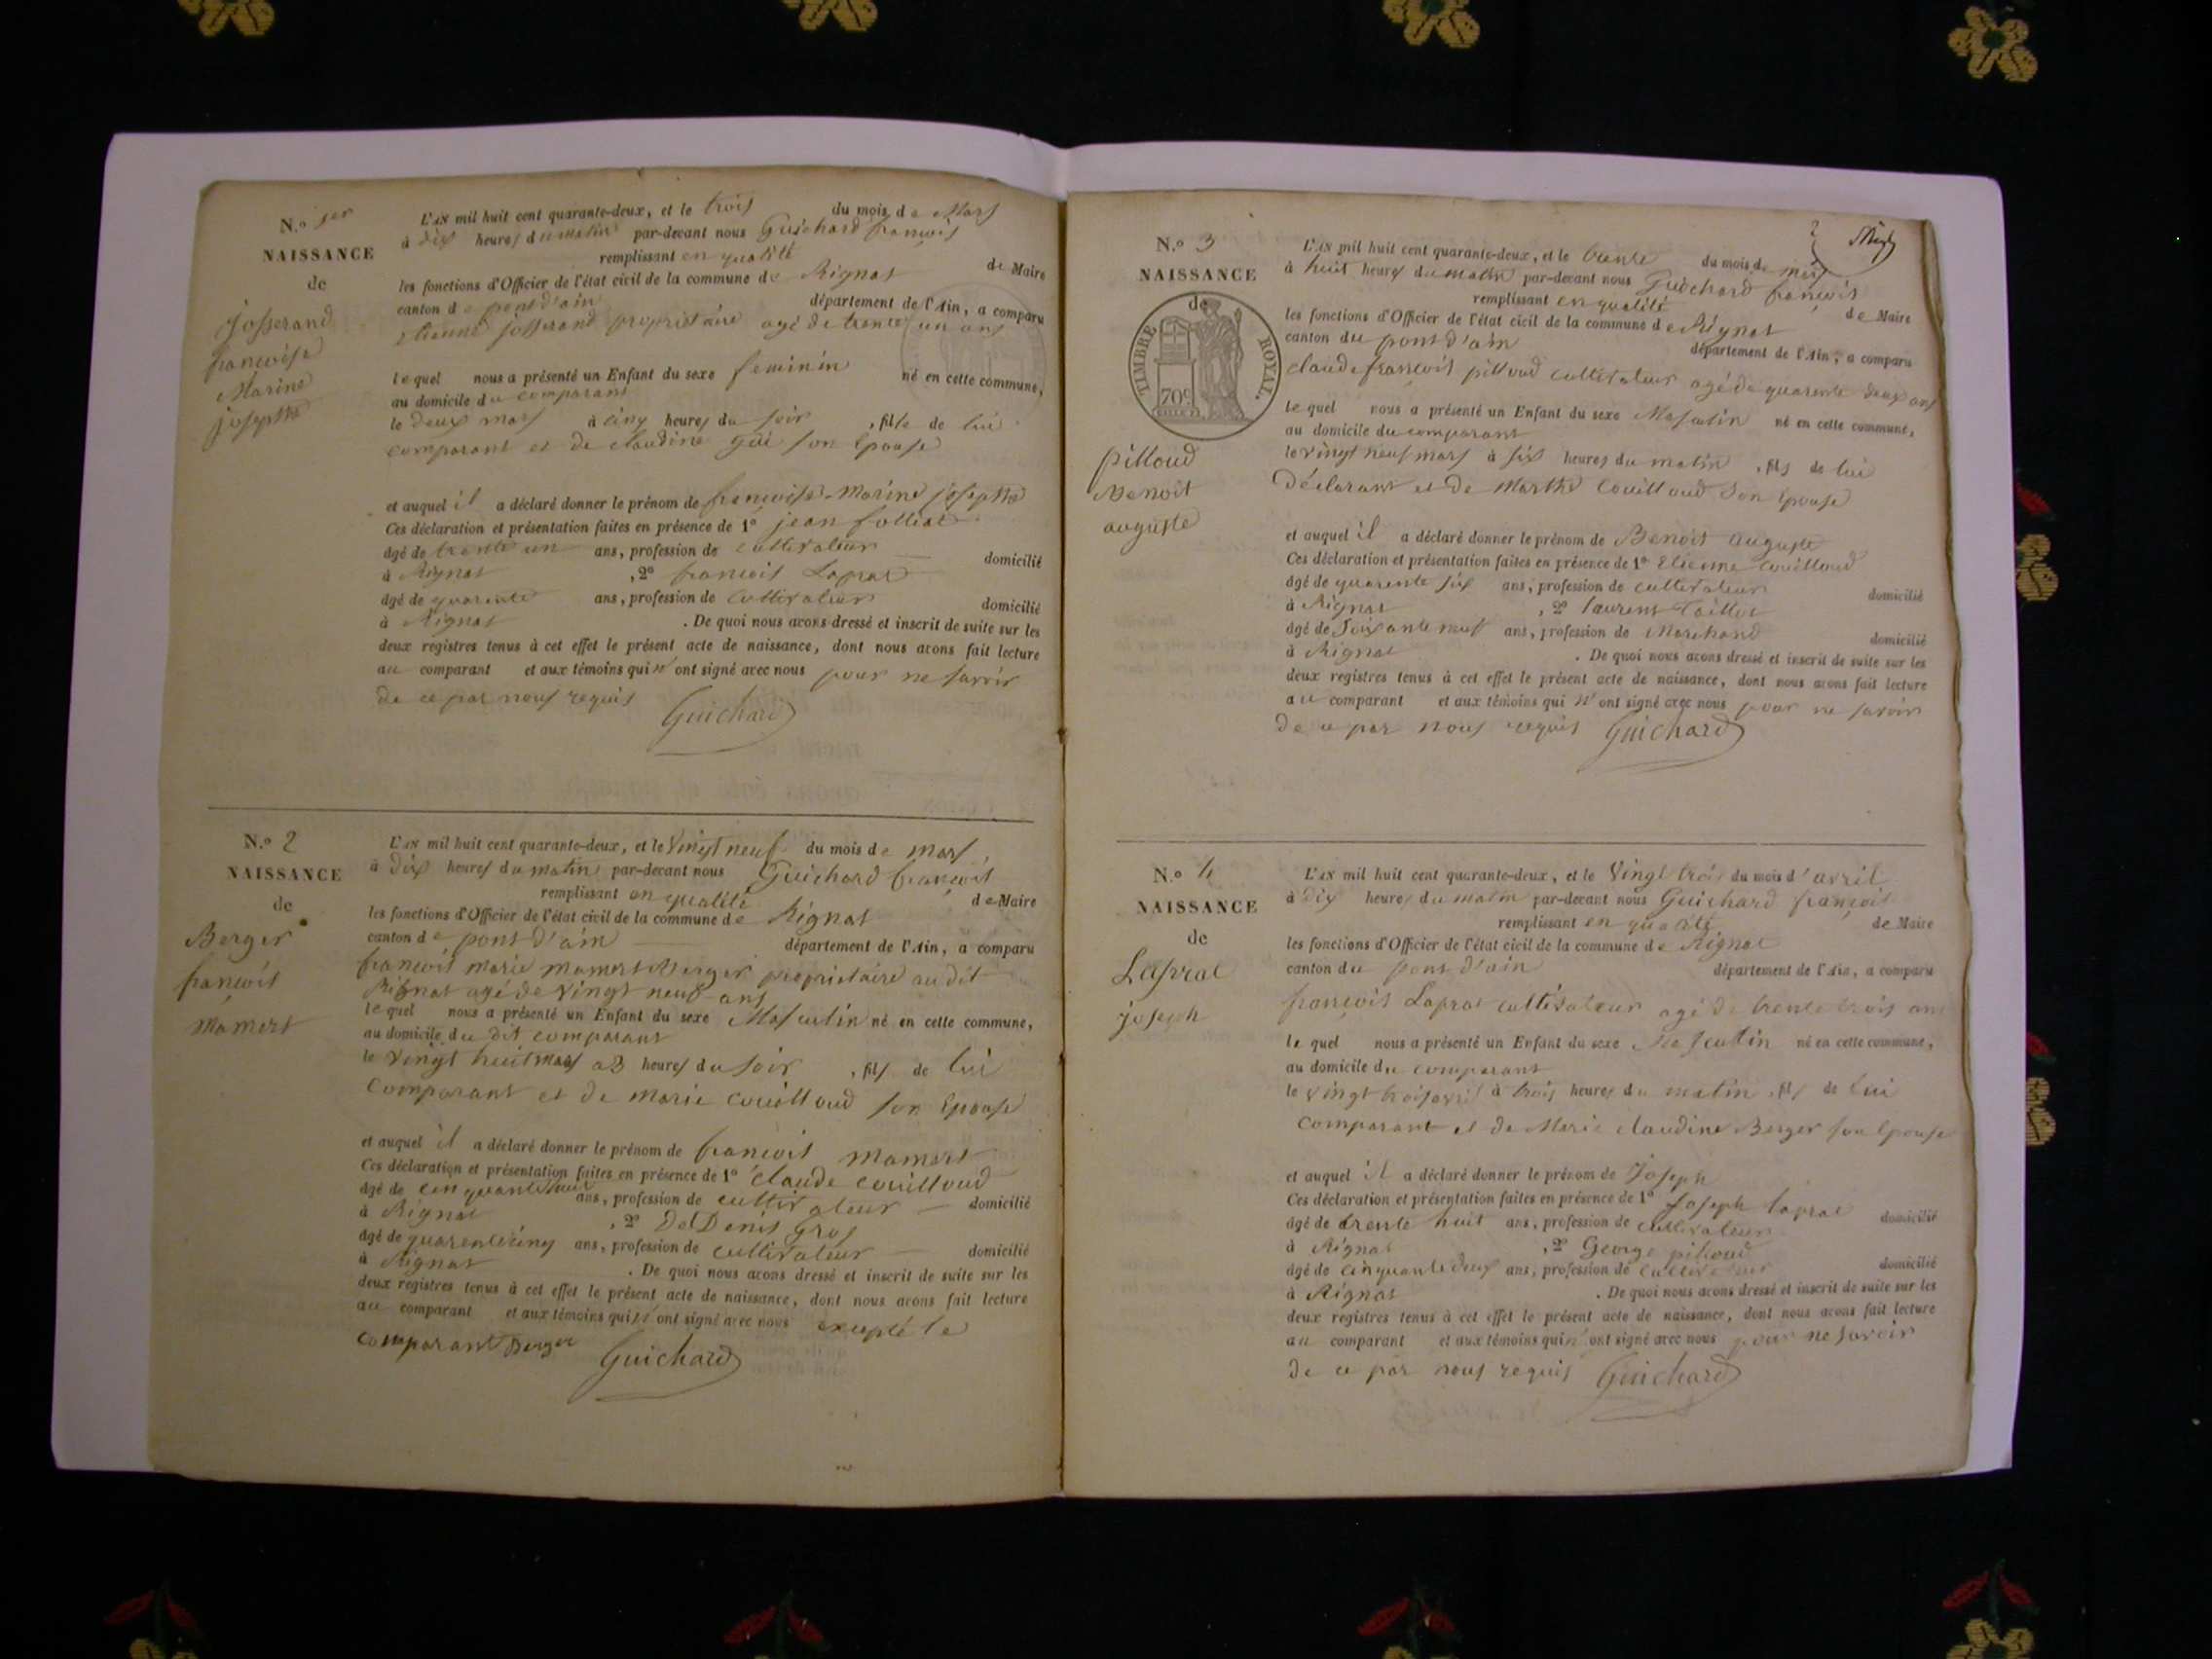 N.º 1er
NAISSANCE
de
Josserand
françoise
Marine
josephte
L'AN mil huit cent quarante-deux, et le trois du mois de Mars
à dix heures du matin par-devant nous Guichard françois
remplissant en qualité de Maire
les fonctions d'Officier de l'état civil de la commune de Rignat
canton de pont d'ain département de l'Ain, a comparu
etienne josserand propriétaire agé de trente un ans
lequel nous a présenté un Enfant du sexe feminin né en cette commune,
au domicile du comparant
le deux mars à cinq heures du soir, fille de lui
comparant et de claudine gui son Epouse
et auquel il a déclaré donner le prénom de françoise-Marine josephte
Ces déclaration et présentation faites en présence de 1º jean folliat
âgé de trente un ans, profession de cultivateur domicilié
à Rignat, 2º françois Laprat
âgé de quarente ans, profession de Cultivateur domicilié
à Rignat. De quoi nous avons dressé et inscrit de suite sur les
deux registres tenus à cet effet le présent acte de naissance, dont nous avons fait lecture
au comparant et aux témoins qui n'ont signé avec nous pour ne savoir
de ce par nous requis Guichard
N.º 2
NAISSANCE
de
Berger
françois
mamert
L'AN mil huit cent quarante-deux, et le Vingt neuf du mois de mars
à dix heures du matin par-devant nous Guichard françois
remplissant en qualité de Maire
les fonctions d'Officier de l'état civil de la commune de Rignat
canton de pont-d'ain département de l'Ain, a comparu
françois marie mamert Berger proprietaire au dit
Rignat agé de vingt neuf ans
lequel nous a présenté un Enfant du sexe Masculin né en cette commune,
au domicile du dit comparant
le vingt huit mars à 3 heures du soir, fils de lui
Comparant et de marie couilloud son Epouse
et auquel il a déclaré donner le prénom de françois mamert
Ces déclaration et présentation faites en présence de 1º claude couilloud
âgé de cinquante ans, profession de cultivateur domicilié
à Rignat, 2º De Denis Gros
âgé de quarente cinq ans, profession de cultivateur domicilié
à Rignat. De quoi nous avons dressé et inscrit de suite sur les
deux registres tenus à cet effet le présent acte de naissance, dont nous avons fait lecture
au comparant et aux témoins qui n'ont signé avec nous excepté le
comparant Berger Guichard
2
N.º 3
NAISSANCE
de
TIMBRE ROYAL.
70c
pilloud
Benoit
auguste
L'AN mil huit cent quarante-deux, et le trente du mois de mars
à huit heures du matin par-devant nous Guichard françois
remplissant en qualité de Maire
les fonctions d'Officier de l'état civil de la commune de Rignat
canton du pont d'ain département de l'Ain, a comparu
claude françois pilloud cultivateur agé de quarente deux ans
lequel nous a présenté un Enfant du sexe Masculin né en cette commune,
au domicile du comparant
le vingt neuf mars à six heures du matin, fils de lui
déclarant et de Marthe Couilloud son Epouse
et auquel il a déclaré donner le prénom de Benoit auguste
Ces déclaration et présentation faites en présence de 1º Etienne couilloud
âgé de quarente six ans, profession de cultivateur domicilié
à Rignat, 2º laurent Caillet
âgé de soixante neuf ans, profession de Marchand domicilié
à Rignat. De quoi nous avons dressé et inscrit de suite sur les
deux registres tenus à cet effet le présent acte de naissance, dont nous avons fait lecture
au comparant et aux témoins qui n'ont signé avec nous pour ne savoir
de ce par nous requis Guichard
N.º 4
NAISSANCE
de
Laprat
joseph
L'AN mil huit cent quarante-deux, et le Vingt trois du mois d'avril
à dix heures du matin par-devant nous Guichard françois
remplissant en qualité de Maire
les fonctions d'Officier de l'état civil de la commune de Rignat
canton du pont d'ain département de l'Ain, a comparu
françois Laprat cultivateur agé de trente trois ans
lequel nous a présenté un Enfant du sexe Masculin né en cette commune,
au domicile du comparant
le vingt trois avril à trois heures du matin, fils de lui
comparant et de Marie claudine Berger son Epouse
et auquel il a déclaré donner le prénom de Joseph
Ces déclaration et présentation faites en présence de 1º Joseph laprat
âgé de trente huit ans, profession de Cultivateur domicilié
à Rignat, 2º George pilloud
âgé de Cinquante deux ans, profession de Cultivateur domicilié
à Rignat. De quoi nous avons dressé et inscrit de suite sur les
deux registres tenus à cet effet le présent acte de naissance, dont nous avons fait lecture
au comparant et aux témoins qui n'ont signé avec nous pour ne savoir
de ce par nous requis Guichard